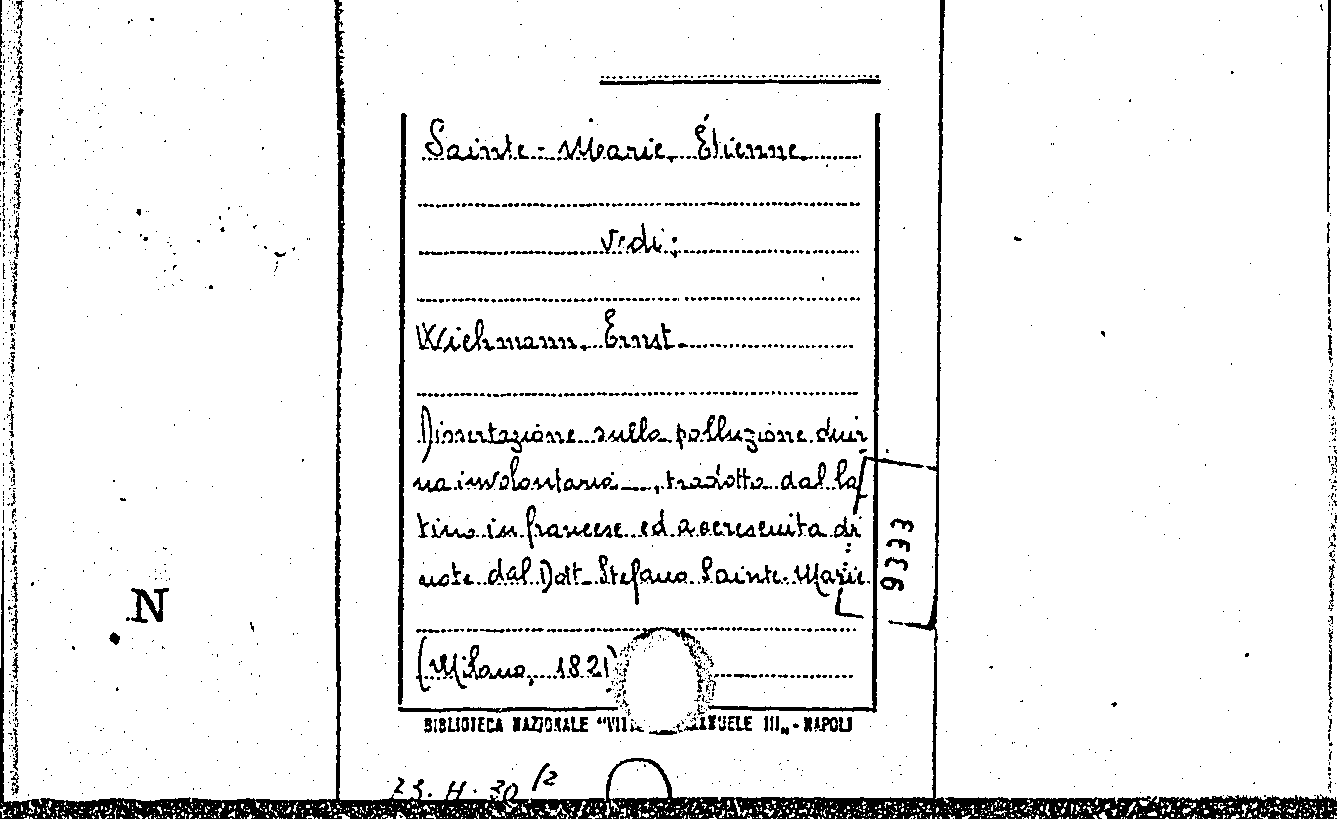 Sainte-Marie, Étienne
vedi:
Wichmann, Ernst.
Dissertazione sulla polluzione diur
na involontaria ..., tradotto dal la
tino in francese ed accresciuta di
note dal Dott. Stefano Sainte-Marie
(Milano, 1821)
BIBLIOTECA NAZIONALE "VITT ANUELE III„ - NAPOLI
23. H. 30 /2
9333
N